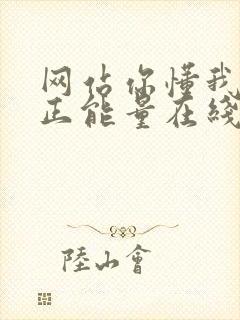 网站你懂我
正能量在线
陸山會